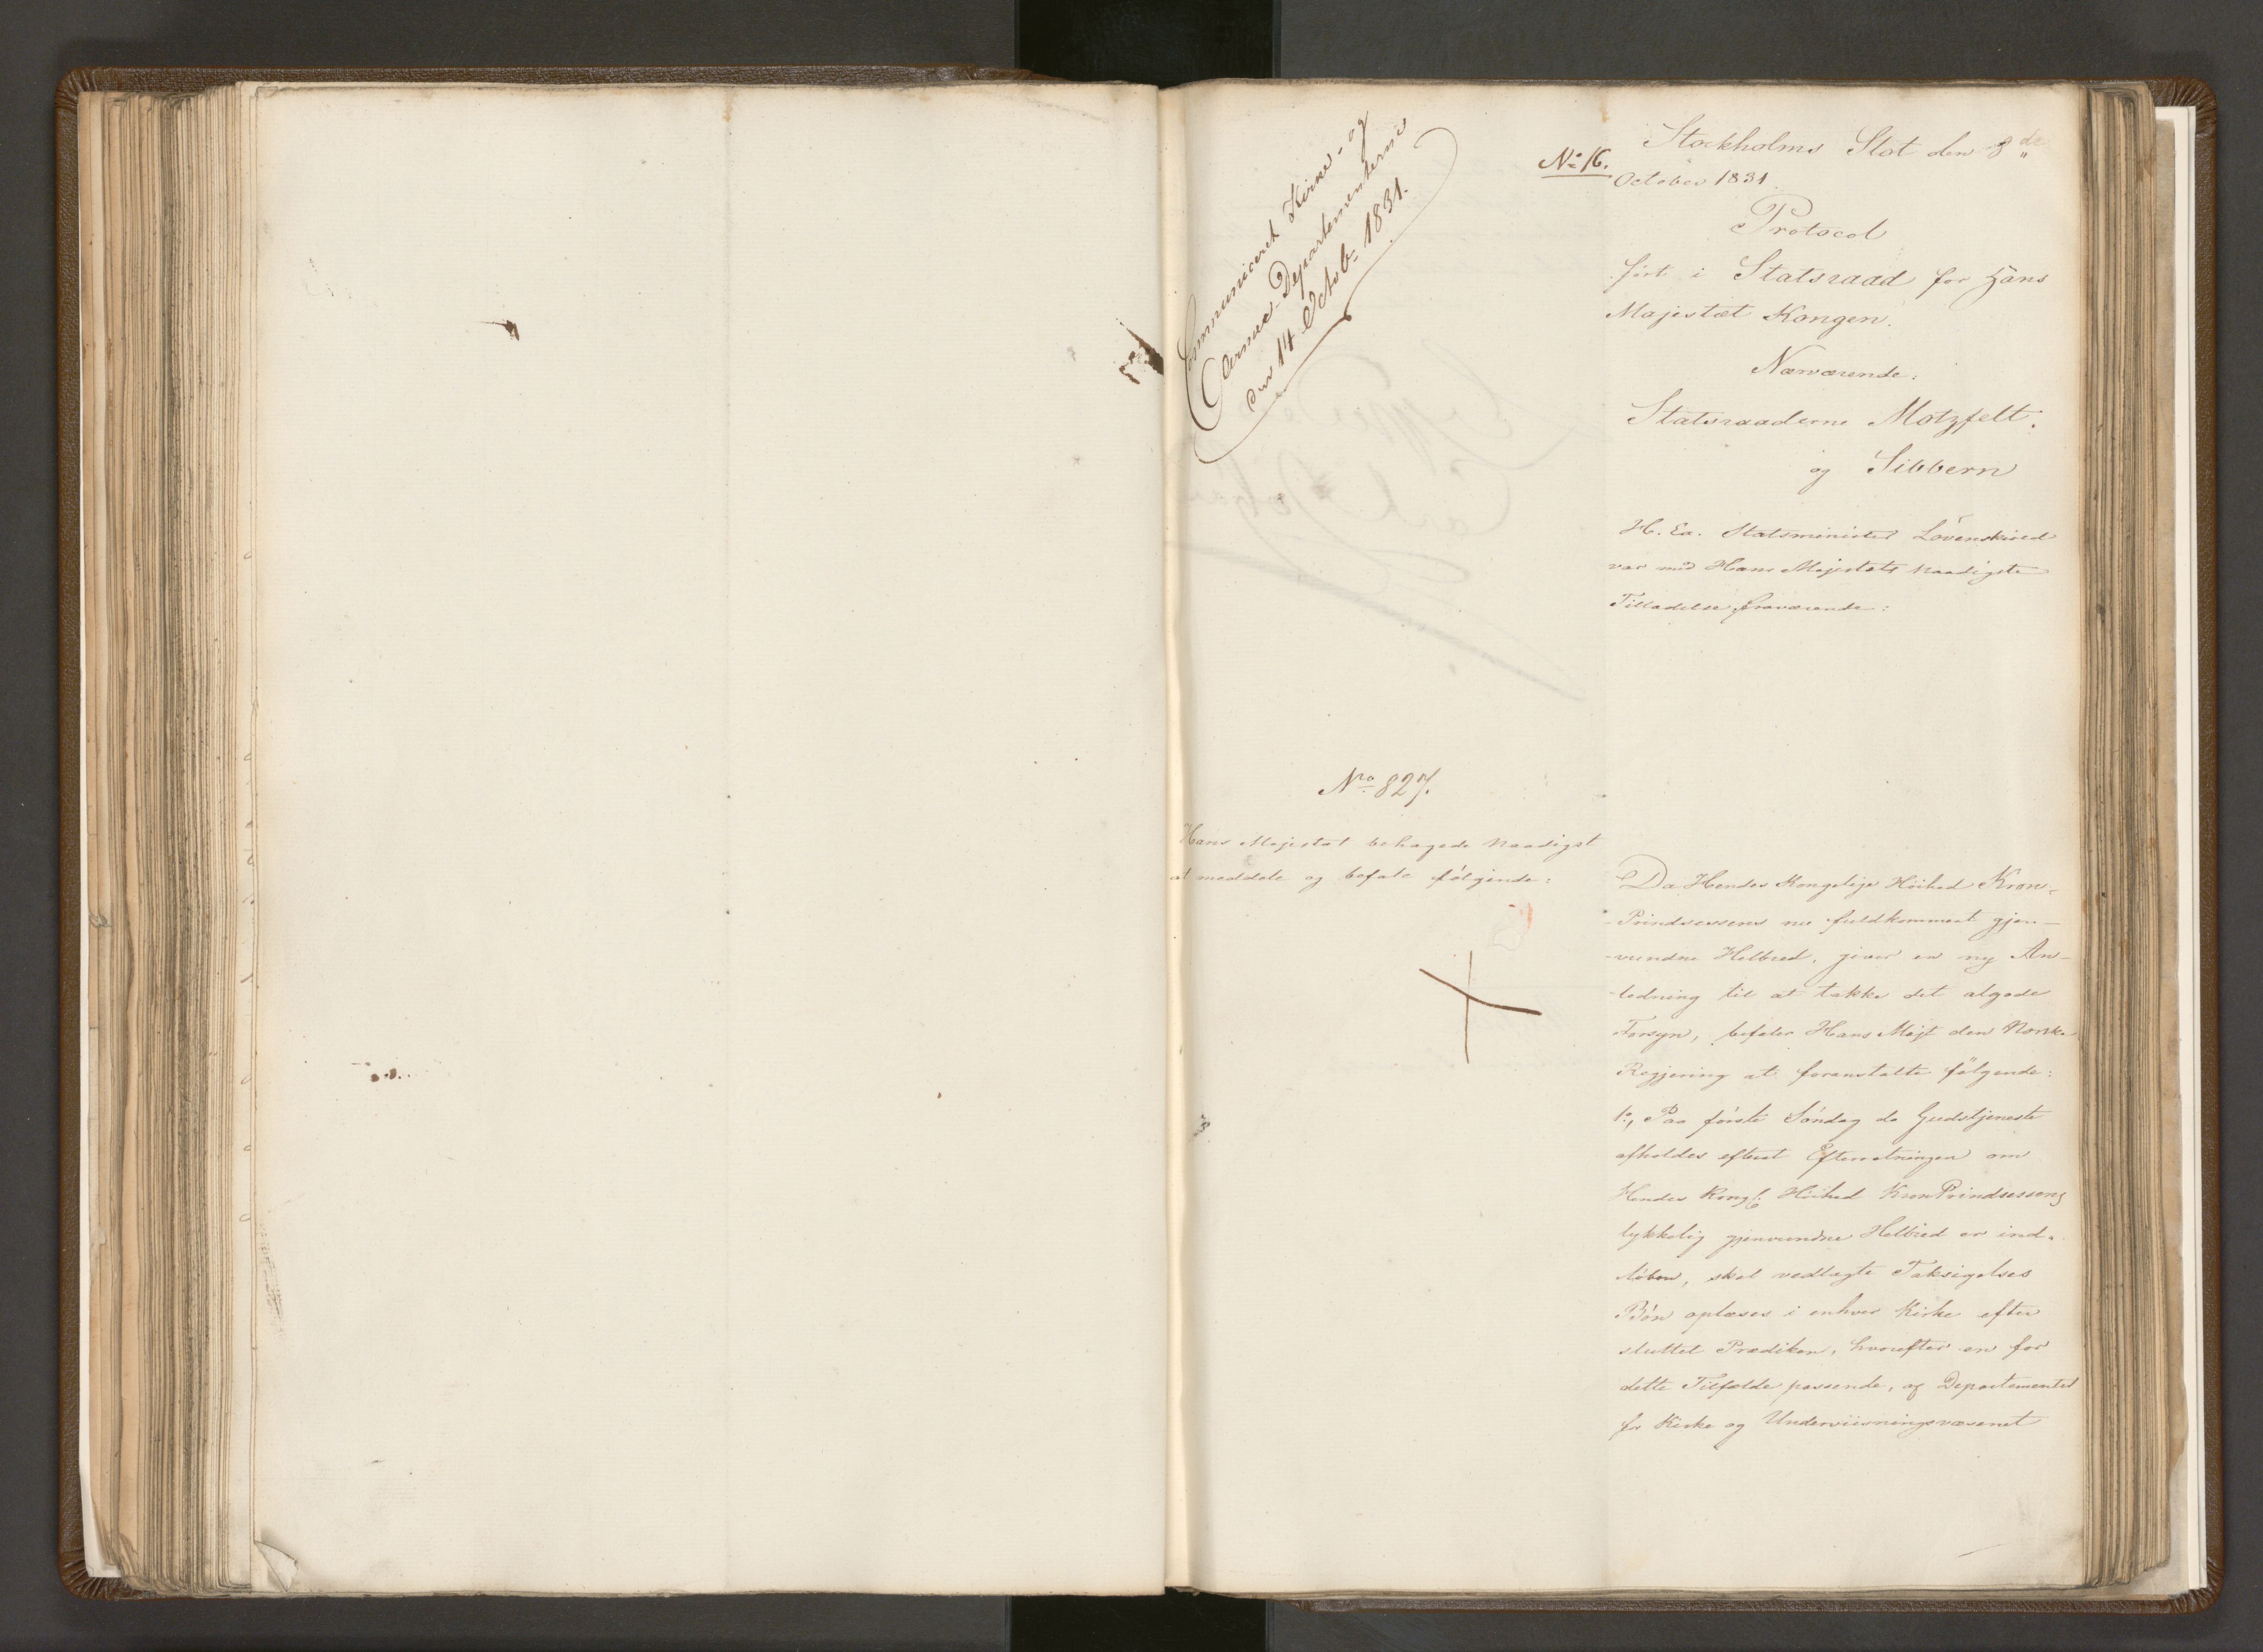 Communiceret Kirke- og
Armee-Departementerne
den 14 Octob: 1831.
No 16.
Stockholms Slot den 8de
October 1831.
Protocol
ført i Statsraad for Hans
Majestæt Kongen.
Nærværende:
Statsraaderne Motzfelt.
og Sibbern
H. Ex. Statsminister Løvenskiold
var med Hans Majestæts naadigste
Tilladelse fraværende:
No 827.
Hans Majestæt behagede naadigst
at meddele og befale følgende:
Da Hendes Kongelige Höihed Kron-
-Prindsessens nu fuldkomment gjen-
-vundne Helbred, giver en ny An-
-ledning til at takke det algode
Forsyn, befaler Hans Majt den Norske
Regjering at foranstalte følgende:
1o, Paa første Søndag da Gudstjeneste
afholdes efterat Efterretningen om
Hendes Kongl: Höihed KronPrindsessens
lykkelig gjenvundne Helbred er ind-
løben, skal vedlagte Taksigelses
Bøn oplæses i enhver Kirke efter
sluttet Prædiken, hvorefter en for
dette Tilfælde passende, af Departementet
for Kirke og Underviisningsvæsenet